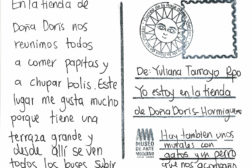 En la tienda de
Doña Doris nos
reunimos todos
a comer papitas y
a chupar bolis. Este
lugar me gusta mucho
porque tiene una
terraza grande y
desde allí se ven
todos los buses subir
De: Yuliana Tamayo
Yo estoy en la tienda
de Doña Doris-Hormiguero
MUSEO
DE ARTE
MODERNO
Hay también unos
murales con
gatos y un perro
que nos acompañan